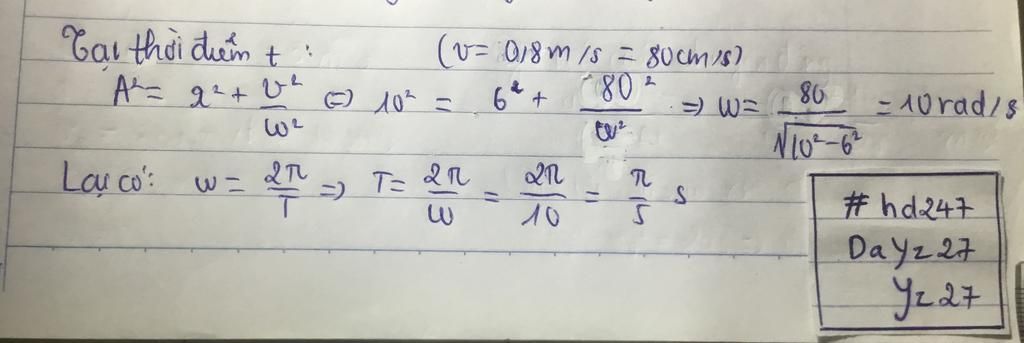 Tại thời điểm t : (v = 0,8 m/s = 80cm/s)
A² = x² + v²/ω² <=> 10² = 6² + 80²/ω² => ω = 80/√(10² - 6²) = 10 rad/s
Lại có: ω = 2π/T => T = 2π/ω = 2π/10 = π/5 s
# hd247
DaYz27
Yz27